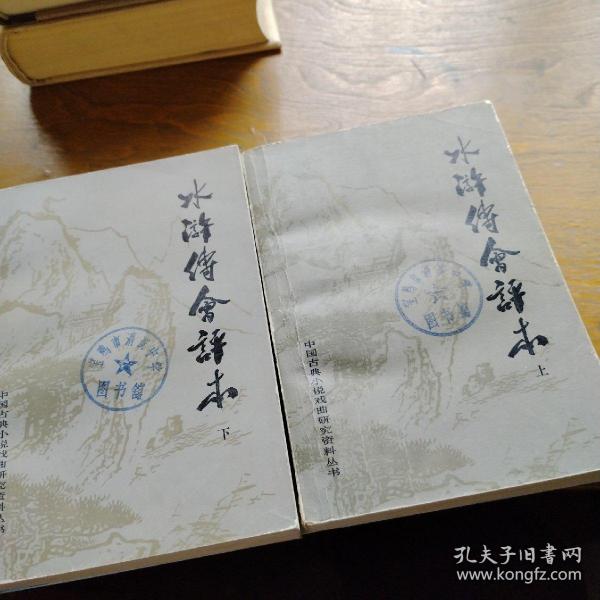 水滸傳會評本
下
图书馆
中国古典小说戏曲研究资料丛书
水滸傳會評本
上
图书馆
中国古典小说戏曲研究资料丛书
孔夫子旧书网
www.kongfz.com